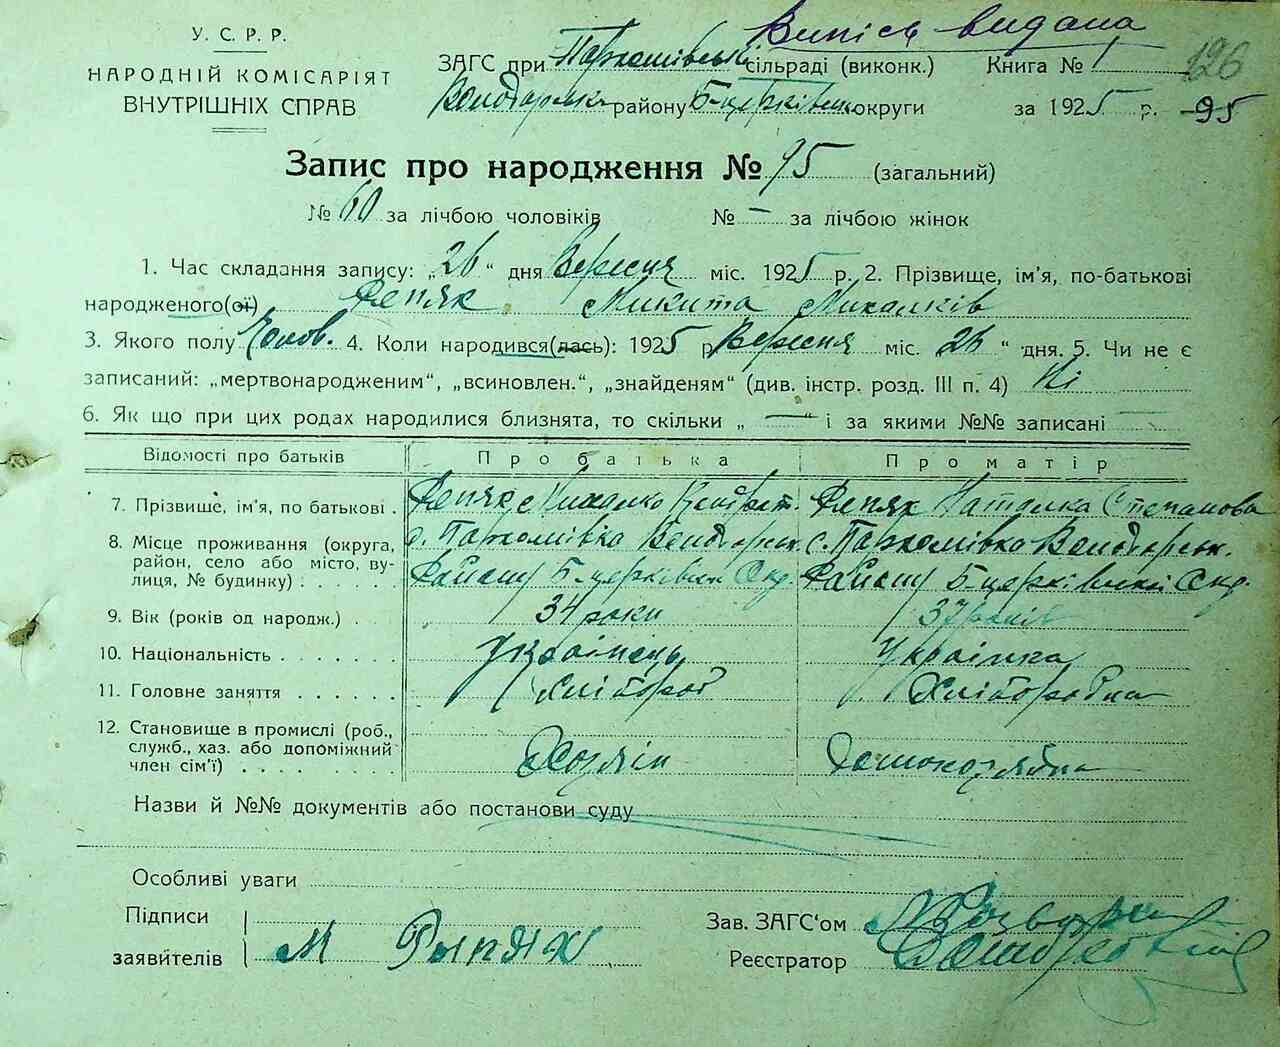 Випісь видана
У. С. Р. Р.
НАРОДНІЙ КОМІСАРІЯТ
ВНУТРІШНІХ СПРАВ
ЗАГС при Пархомівській сільраді (виконк.) Книга № 1 126
району Б-церківськ округи за 1925 р. 95
Запис про народження № 95 (загальний)
№ 60 за лічбою чоловіків № — за лічбою жінок
1. Час складання запису: „26“ дня Вересня міс. 1925 р. 2. Прізвище, ім'я, по-батькові
народженого(ої) Репяк Микита Михалків
3. Якого полу Чолов. 4. Коли народився(лась): 1925 р. Вересня міс. 26 “ дня. 5. Чи не є
записаний: „мертвонародженим“, „всиновлен.“, „знайденям“ (див. інстр. розд. III п. 4) Ні
6. Як що при цих родах народилися близнята, то скільки „ — “ і за якими №№ записані —
Відомості про батьків Про батька Про матір
7. Прізвище, ім'я, по батькові . Репяк Михалко Кіндрат. Репяк Наталка Степанова
8. Місце проживання (округа, район, село або місто, вулиця, № будинку) с. Пархомівка с. Пархомівка
Району Б-церківськ Окр. Району Б-церківської Окр.
9. Вік (років од народж.) . . 34 роки 37 років
10. Національність . . . . . . . Українець Українка
11. Головне заняття . . . . . . Хлібороб Хліборобка
12. Становище в промислі (роб., служб., хаз. або допоміжний член сім'ї) . . . . . . . . Хозяїн Домохозяйка
Назви й №№ документів або постанови суду
Особливі уваги
Підписи
заявителів М Рыпяк
Зав. ЗАГС'ом
Реєстратор